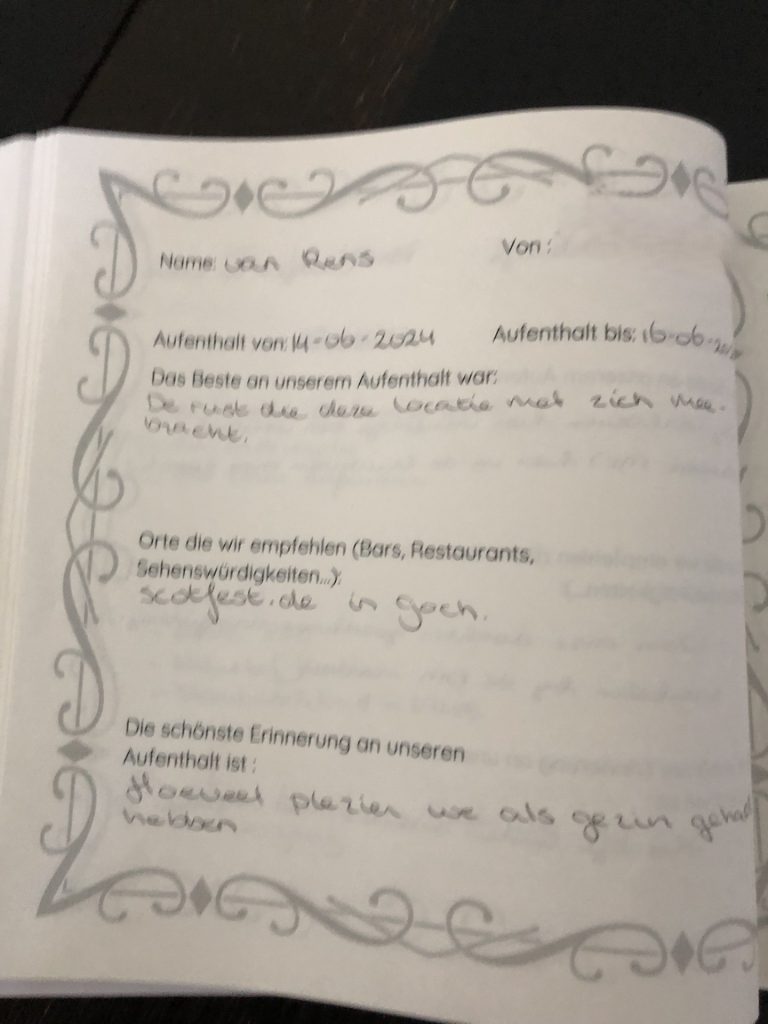 Name: van Rens
Von:
Aufenthalt von: 14-06-2024
Aufenthalt bis: 16-06-2024
Das Beste an unserem Aufenthalt war:
De rust die deze locatie met zich mee-
bracht.
Orte die wir empfehlen (Bars, Restaurants,
Sehenswürdigkeiten...):
scotfest.de in goch.
Die schönste Erinnerung an unseren
Aufenthalt ist :
Hoeveel plezier we als gezin gehad
hebben